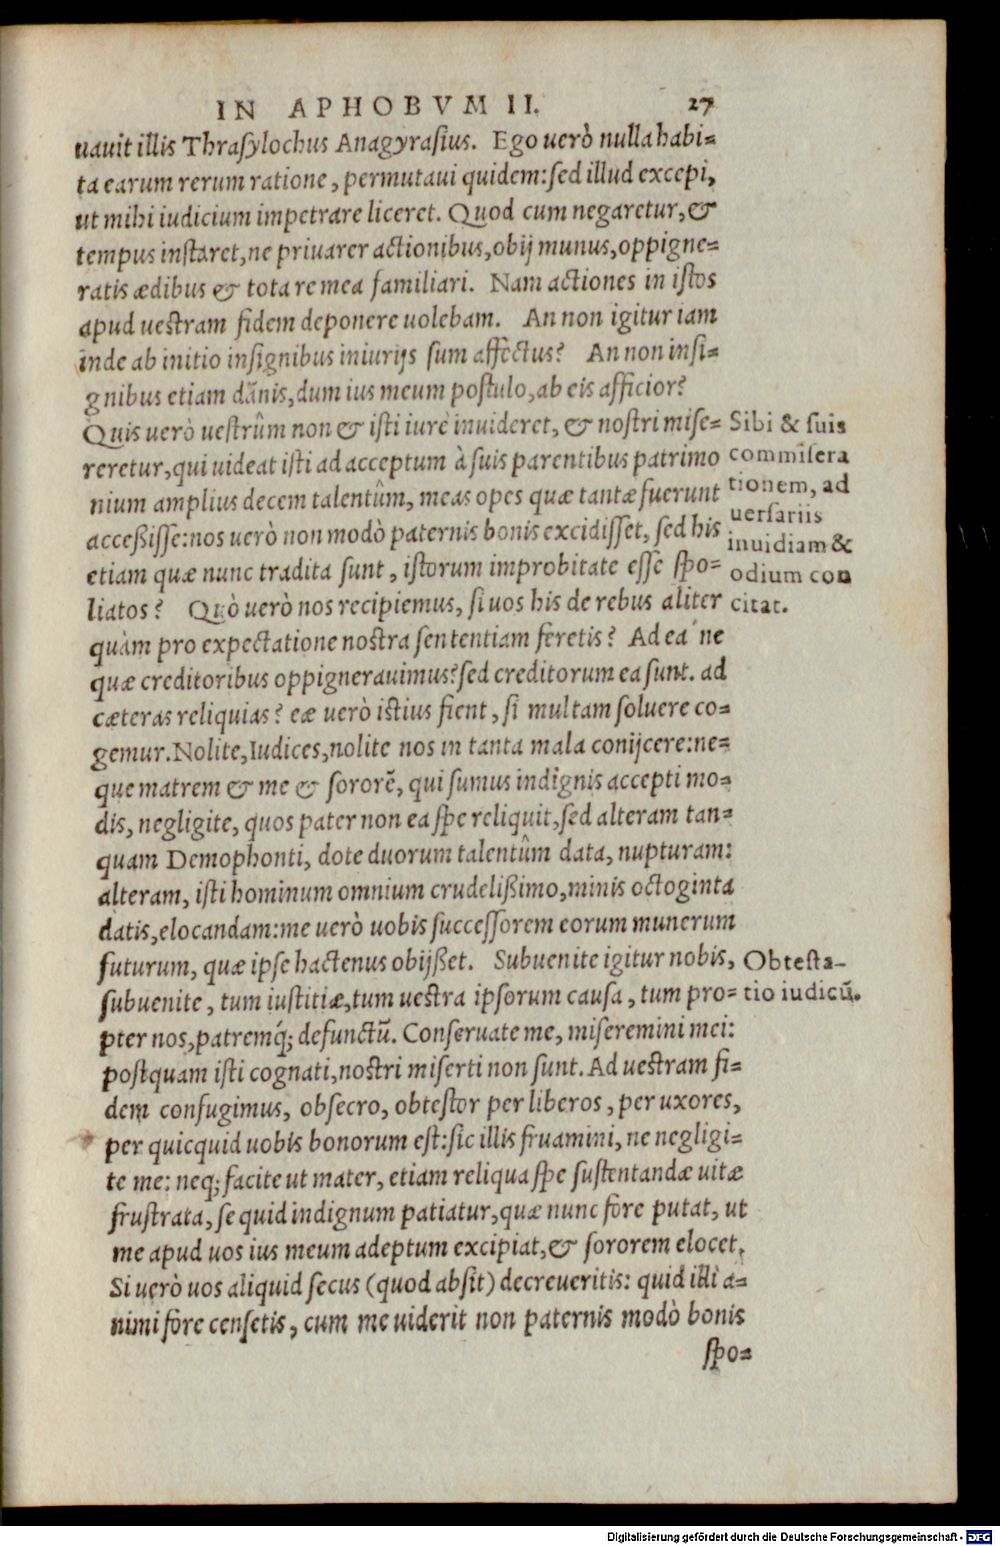 IN APHOBVM II. 27
uauit illis Thrasylochus Anagyrasius. Ego uerò nulla habi-
ta earum rerum ratione, permutaui quidem: sed illud excepi,
ut mihi iudicium impetrare liceret. Quod cum negaretur, &
tempus instaret, ne priuarer actionibus, obij munus, oppigne-
ratis ædibus & tota re mea familiari. Nam actiones in istos
apud uestram fidem deponere uolebam. An non igitur iam
inde ab initio insignibus iniurijs sum affectus? An non insi-
gnibus etiam dānis, dum ius meum postulo, ab eis afficior?
Quis uerò uestrûm non & isti iure inuideret, & nostri mise-
reretur, qui uideat isti ad acceptum à suis parentibus patrimo
nium amplius decem talentûm, meas opes quæ tantæ fuerunt
acceßisse: nos uerò non modò paternis bonis excidisset, sed his
etiam quæ nunc tradita sunt, istorum improbitate esse spo-
liatos? Quò uerò nos recipiemus, si uos his de rebus aliter
quàm pro expectatione nostra sententiam feretis? Ad ea´ne
quæ creditoribus oppignerauimus? sed creditorum ea sunt. ad
cæteras reliquias? eæ uerò istius fient, si multam soluere co-
gemur. Nolite, Iudices, nolite nos in tanta mala conijcere: ne-
que matrem & me & sororē, qui sumus indignis accepti mo-
dis, negligite, quos pater non ea spe reliquit, sed alteram tan-
quam Demophonti, dote duorum talentûm data, nupturam:
alteram, isti hominum omnium crudelißimo, minis octoginta
datis, elocandam: me uerò uobis successorem eorum munerum
futurum, quæ ipse hactenus obijßet. Subuenite igitur nobis,
subuenite, tum iustitiæ, tum uestra ipsorum causa, tum pro-
pter nos, patremq́; defunctū. Conseruate me, miseremini mei:
postquam isti cognati, nostri miserti non sunt. Ad uestram fi-
dem confugimus, obsecro, obtestor per liberos, per uxores,
per quicquid uobis bonorum est: sic illis fruamini, ne negligi-
te me: neq; facite ut mater, etiam reliqua spe sustentandæ uitæ
frustrata, se quid indignum patiatur, quæ nunc fore putat, ut
me apud uos ius meum adeptum excipiat, & sororem elocet.
Si uerò uos aliquid secus (quod absit) decreueritis: quid illi a-
nimi fore censetis, cum me uiderit non paternis modò bonis
spo-
Sibi & suis
commisera
tionem, ad
uersariis
inuidiam &
odium con
citat.
Obtesta-
tio iudicū.
Digitalisierung gefördert durch die Deutsche Forschungsgemeinschaft - DFG